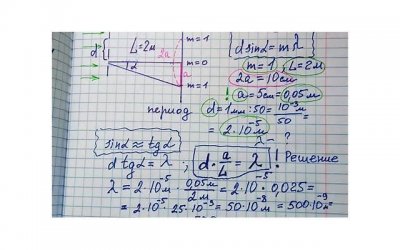 m=1
d
L=2м
2a
m=0
α
a
m=1
d sinα = mλ
m=1; L=2м
2a=10см
!
a=5см=0,05м
период
d=1мм:50= 10⁻³м/50 =
= 2·10⁻⁵м
λ - ?
sinα ≈ tgα
d tgα = λ; d · a/L = λ ! Решение
λ = 2·10⁻⁵м · 0,05м/2м = 2·10⁻⁵·0,025=
= 2·10⁻⁵·25·10⁻³ = 50·10⁻⁸м = 500·10⁻⁹м=